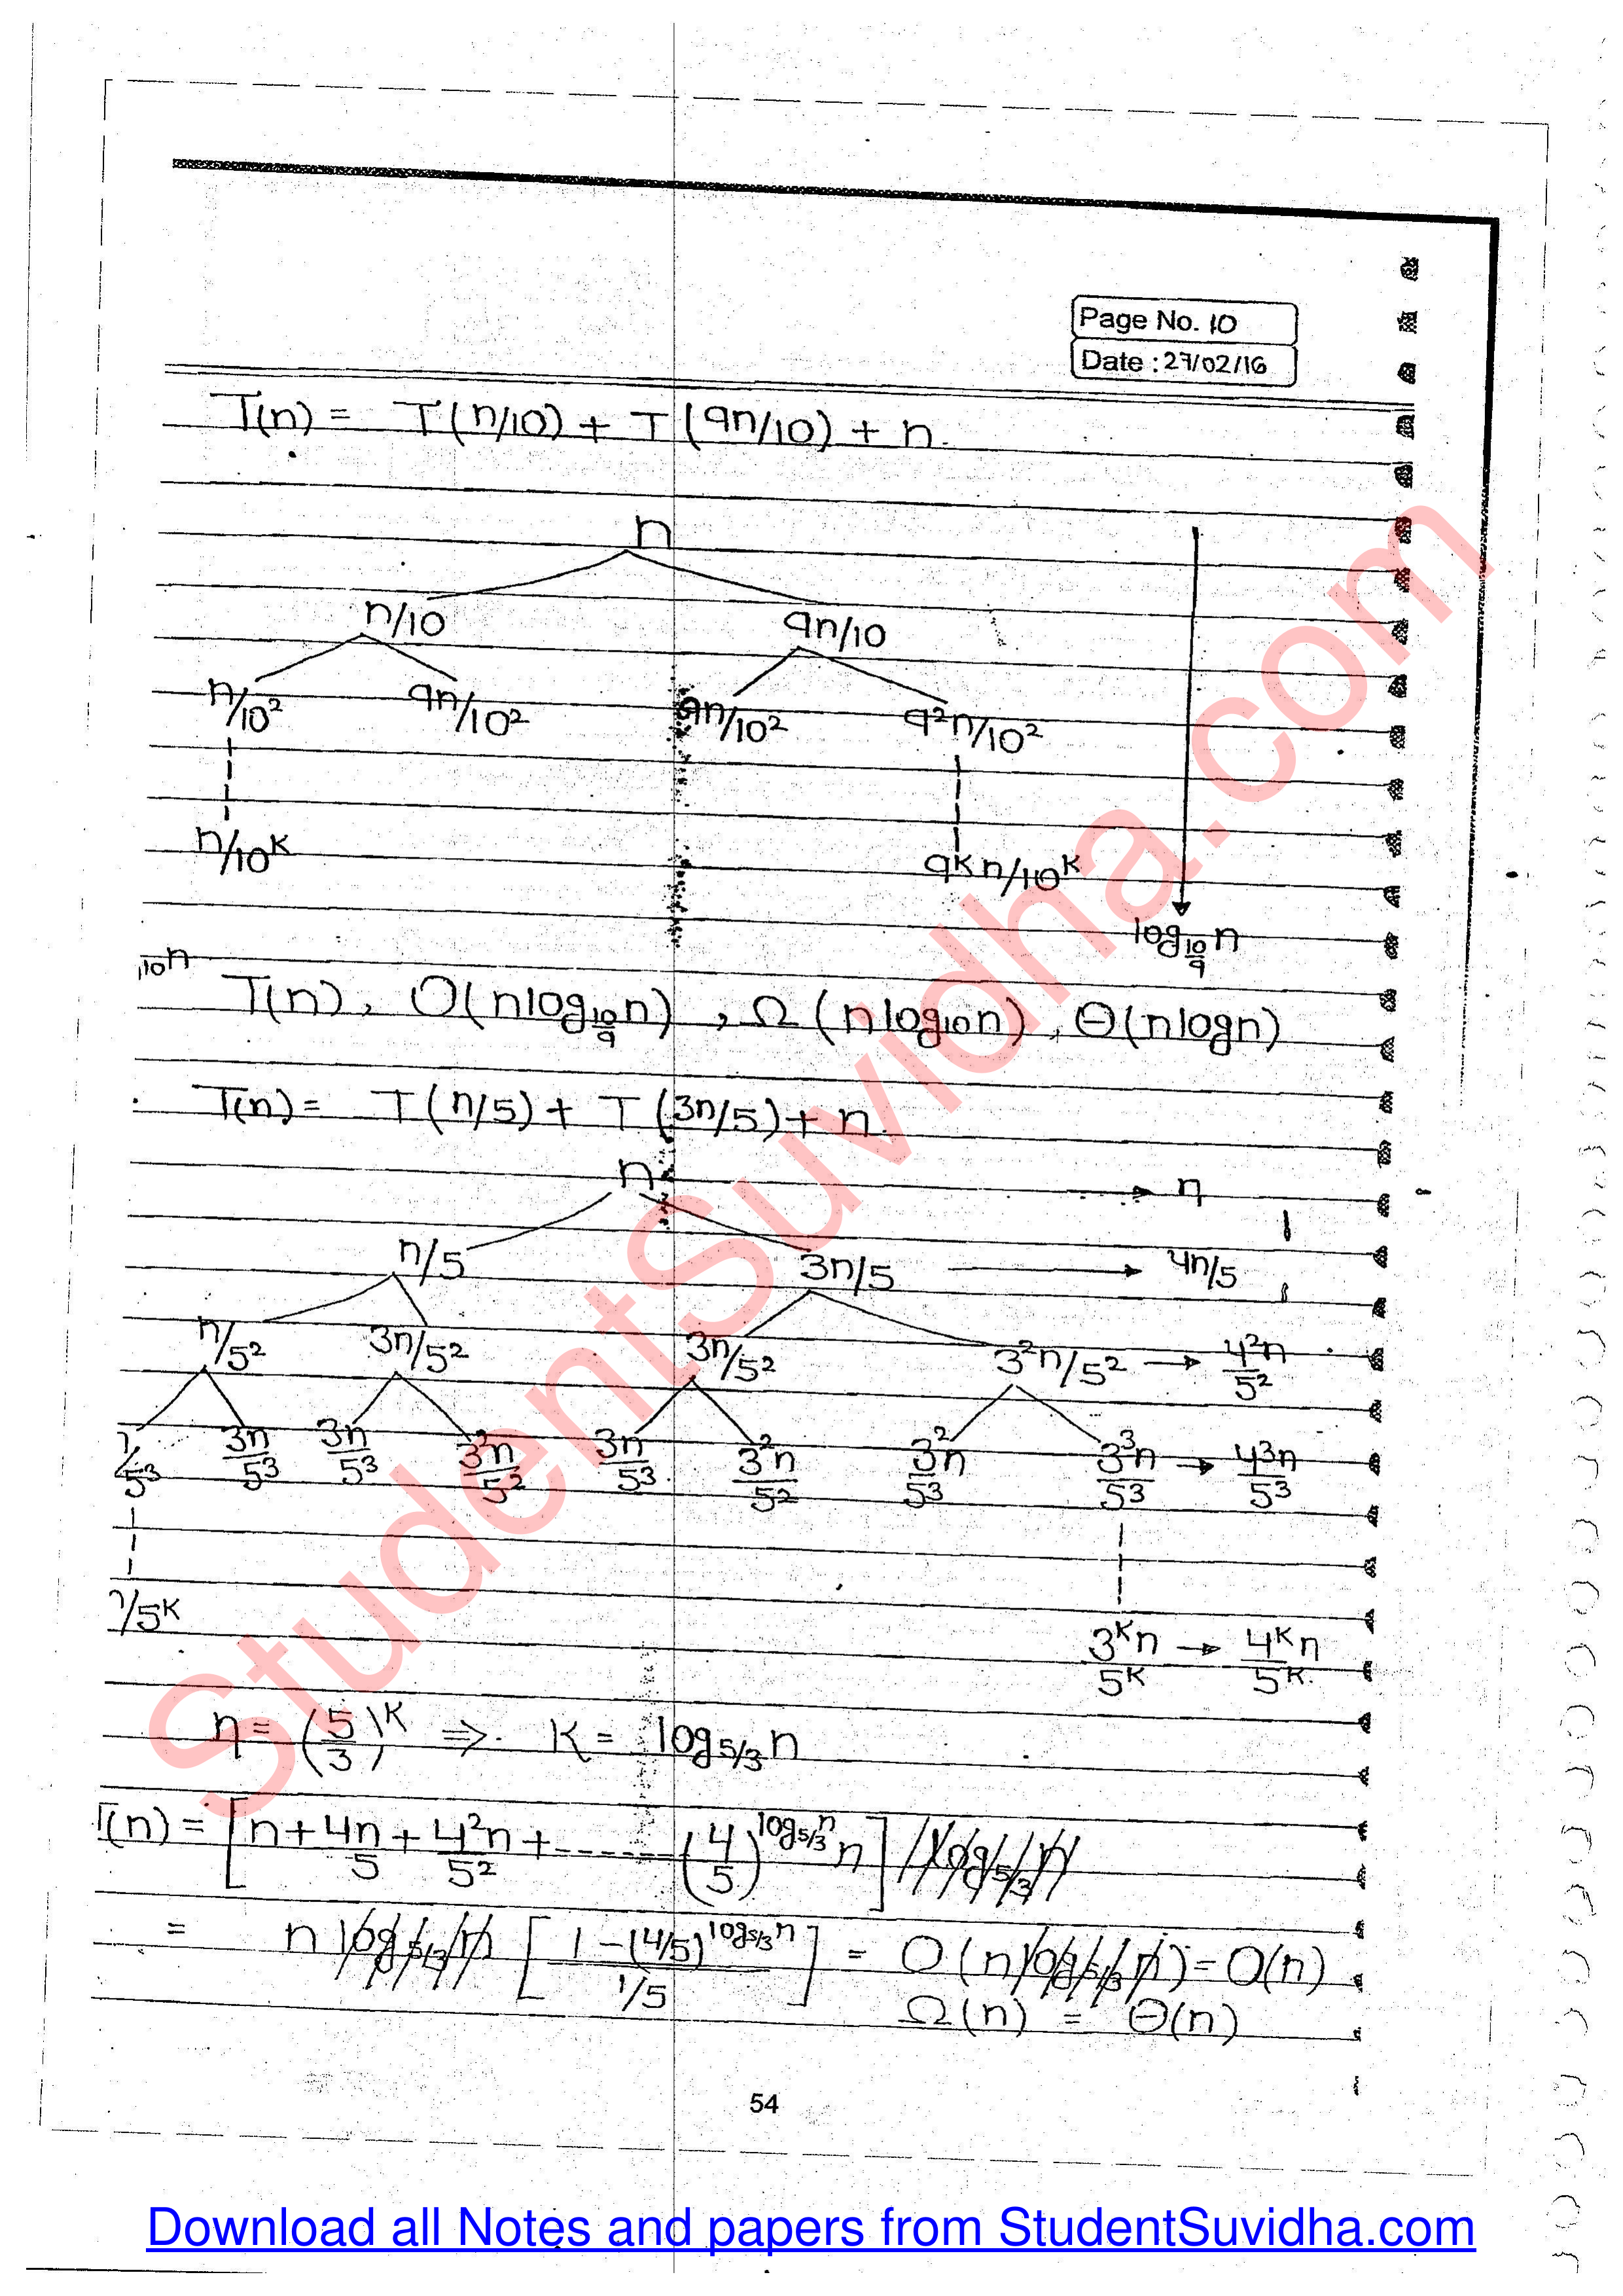 Page No. 10
Date : 27/02/16
T(n) = T(n/10) + T(9n/10) + n.
n
n/10 9n/10
n/10² 9n/10² 9n/10² 9²n/10²
n/10ᴷ 9ᴷn/10ᴷ
log₁₀⁄₉ n
T(n), O(nlog₁₀⁄₉ n), Ω(nlog₁₀n), Θ(nlogn)
T(n) = T(n/5) + T(3n/5) + n.
n → n
n/5 3n/5 → 4n/5
n/5² 3n/5² 3n/5² 3²n/5² → 4²n/5²
/5³ 3n/5³ 3n/5³ 3²n/5² 3n/5³ 3²n/5² 3²n/5³ 3³n/5³ → 4³n/5³
/5ᴷ
3ᴷn/5ᴷ → 4ᴷn/5ᴷ
n = (5/3)ᴷ ⇒ K = log₅⁄₃ n
T(n) = [n + 4n/5 + 4²n/5² + ------ (4/5)^(log₅⁄₃ n) n] log₅⁄₃ n
= n log₅⁄₃ n [1-(4/5)^(log₅⁄₃ n) / 1/5] = O(n log₅⁄₃ n) = O(n)
Ω(n) = Θ(n)
54
StudentSuvidha.com
Download all Notes and papers from StudentSuvidha.com